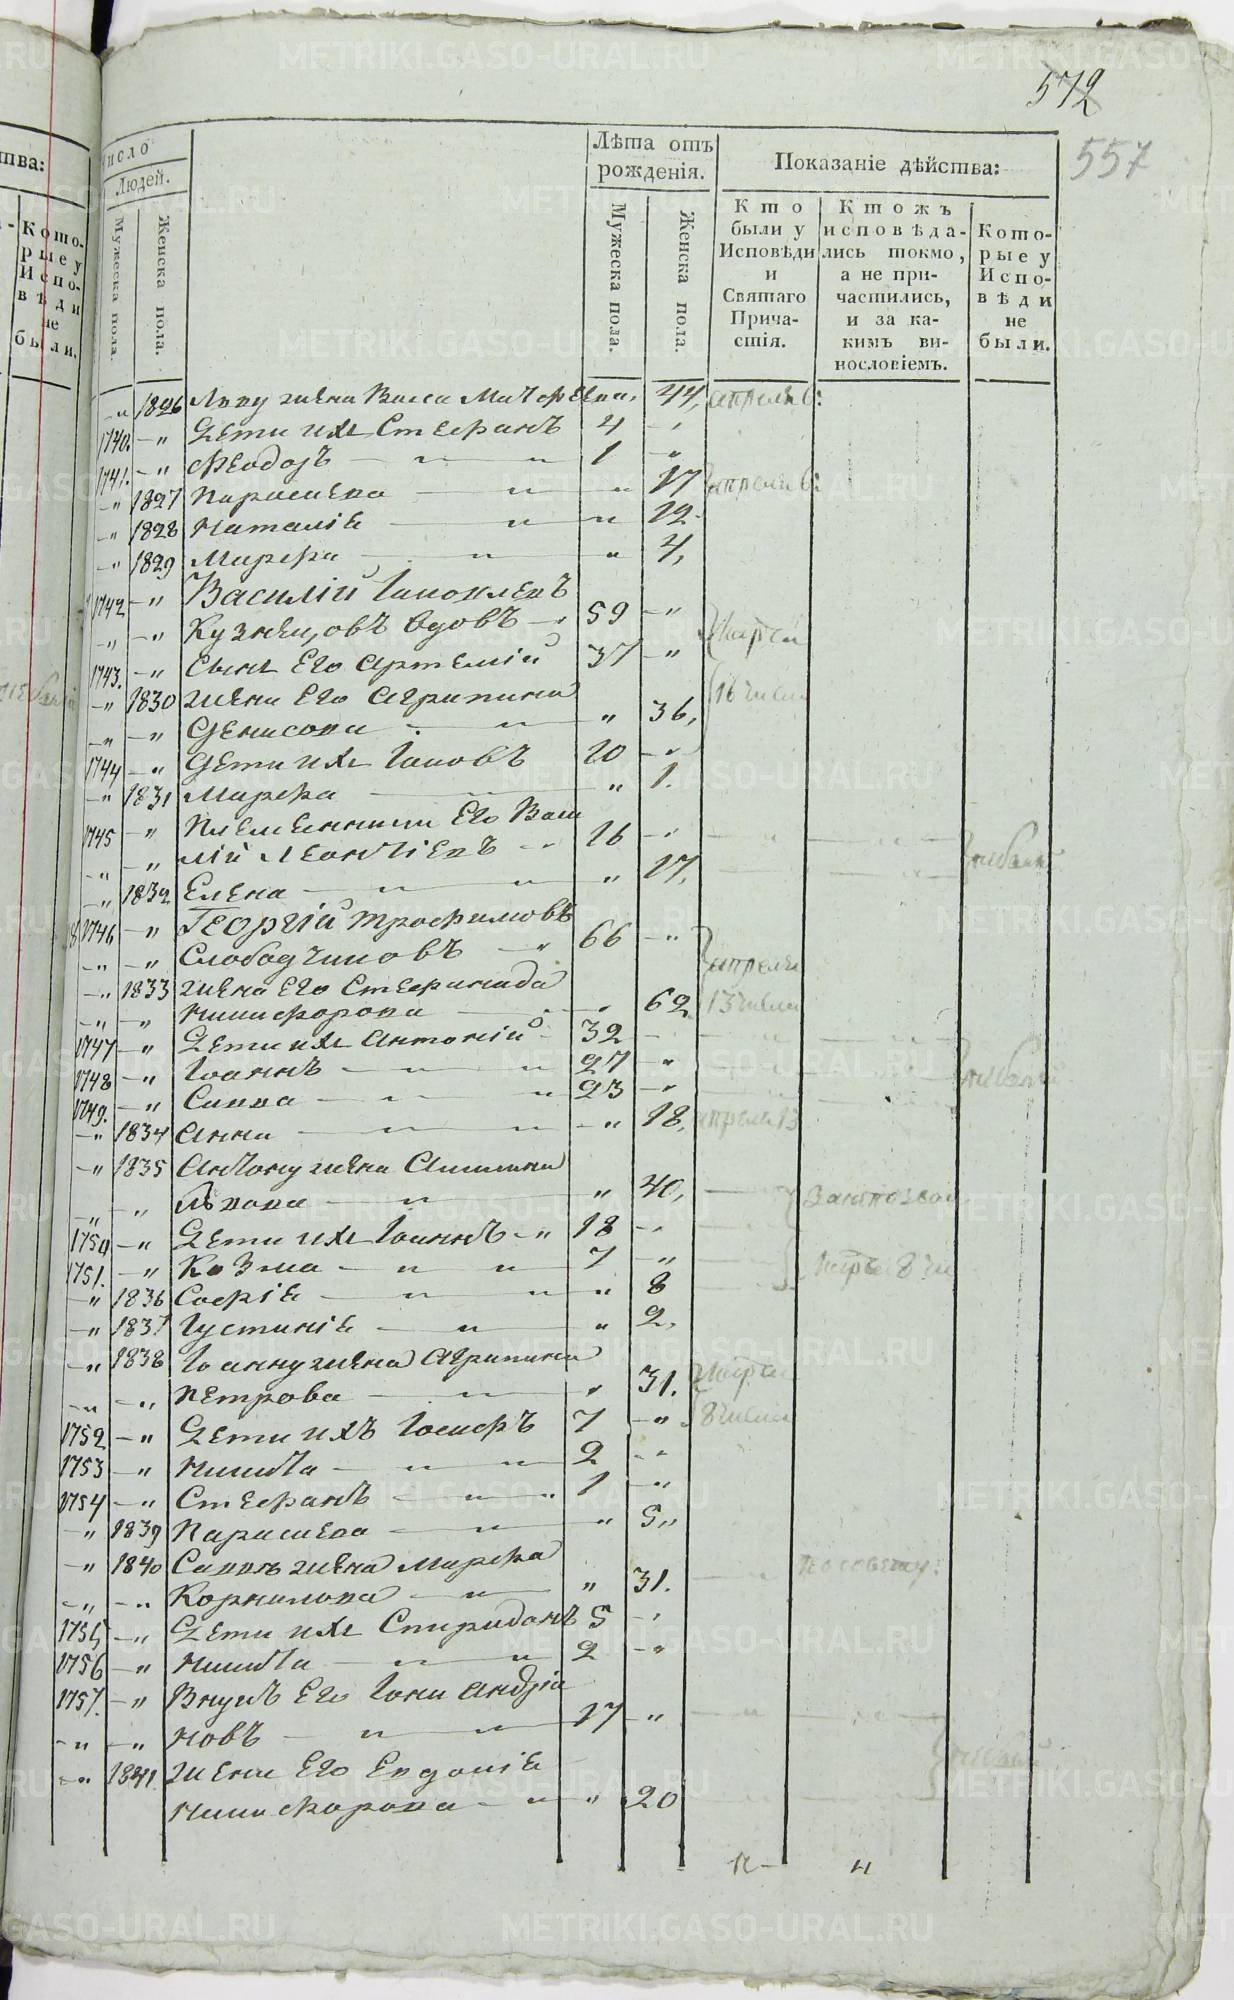 572
557
Число Людей.
Мужеска пола.
Женска пола.
Лѣта отъ рожденія.
Мужеска пола.
Женска пола.
Показаніе дѣйства:
Кто были у Исповѣди и Святаго Причастія.
Ктожъ исповѣдались токмо, а не причастились, и за какимъ винословіемъ.
Которые у Исповѣди не были.
-" 1826 жена Васса 44, апреля 6:
1740. -" Дети ихъ Стефанъ 4 -"
1741. -" Феодоръ - " - " 1 "
" 1827 Параскева - " " 17 апреля 6:
" 1828 Наталіѣ " " 12
-" 1829 Марфа - " " 4,
1742 -" Василій Іаковлевъ
-" -" Кузнецовъ вдовъ - 59 -" Марта
1743. -" Сынъ Его Артемій 37 -"
-" 1830 жена Его Агрипина 16 числа
-" -" Денисова - " " 36,
1744 -" Дети ихъ Іаковъ 10 -"
-" 1831 Марфа " 1.
1745 -" Племянникъ Его Васи
-" лій Леонтіевъ -" 16 -" небылъ
-" 1832 Елена - " " " 17,
1746 -" Георгій Трофимовъ
-" -" Слободчиковъ -" 66 -" апреля
-" 1833 жена Его Стефанида
-" -" Никифорова - " 62 13 числа
1747 -" Дети ихъ Антоній 32 -
1748 -" Іоаннъ - " " 27 "
1749. -" Савва - " " 23 -"
-" 1834 Анна - " " -" 18, апреля 13
-" 1835 Антону жена Акилина
-" -" Львова - " " 40,
1750 -" Дети ихъ Іоаннъ -" 18 -"
1751. -" Козма - " " 7 -" 8
-" 1836 Софіѣ - " " " 8
-" 1837 Іустиніѣ - " " 2,
-" 1838 Іоанну жена Агрипина
-" -" Петрова - " " 31. Марта
1752 -" Дети ихъ Іосифъ 7 -" 8 числа
1753 -" Никита - " " 2 -"
1754 -" Стефанъ - " " 1 -"
-" 1839 Параскева - " " 5,
-" 1840 Саввы жена Марфа
-" -" Корнилова - " " 31. по совету:
1755 -" Дети ихъ Спиридонъ 5 -"
1756 -" Никита - " " 2 -"
1757. -" Внукъ Его Іона Андріа
-" -" новъ - " " 17 -"
-" 1841 жена Его Евдокіѣ
Никифорова - " " 20
METRIKI.GASO-URAL.RU